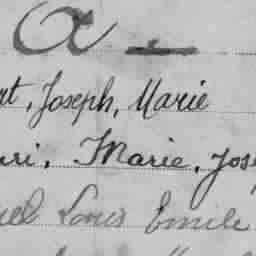 a
, Joseph, Marie
, Marie, Jos
Louis Emile